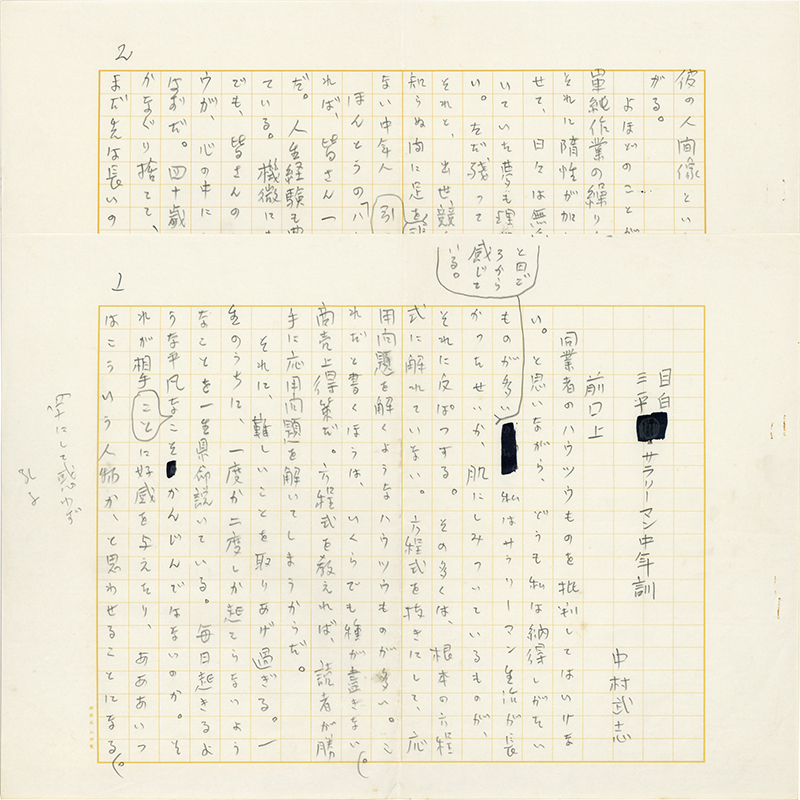 1
目白
三平サラリーマン中年訓
中村武志
前口上
同業者のハウツウものを批判してはいけな
い。と思いながら、どうも私は納得しがたい
ものが多い
と日ご
ろから
感じて
いる。
私はサラリーマン生活が長
かったせいか、肌にしみついているものが、
それに反ぱつする。その多くは、根本の方程
式に解れていない。方程式を抜きにして、応
用問題を解くようなハウツウものが多い。こ
れだと書くほうは、いくらでも種が盡きない。
商売上得策だ。方程式を教えれば、読者が勝
手に応用問題を解いてしまうからだ。
それに、難しいことを取りあげ過ぎる。一
生のうちに、一度か二度しか起こらないよう
なことを一生県命説いている。毎日起きるよ
うな平凡なことこそかんじんではないのか。そ
れが相手に好感を与えたり、ああいつ
はこういう人物か、と思わせることになる。
2
彼の人間像とい
がる。
よほどのことが
単純作業の繰り
それに惰性が加
せて、日々は無
いていた夢も理
い。ただ残って
それと、出世競
知らぬ間に足を
引
ない中年人
ほんとうの「ハ
れば、皆さん一
だ。人生経験も
ている。機微に
でも、皆さんの
ウが、心の中に
はずだ。四十歳
かなぐり捨てて、
まだ先は長いの